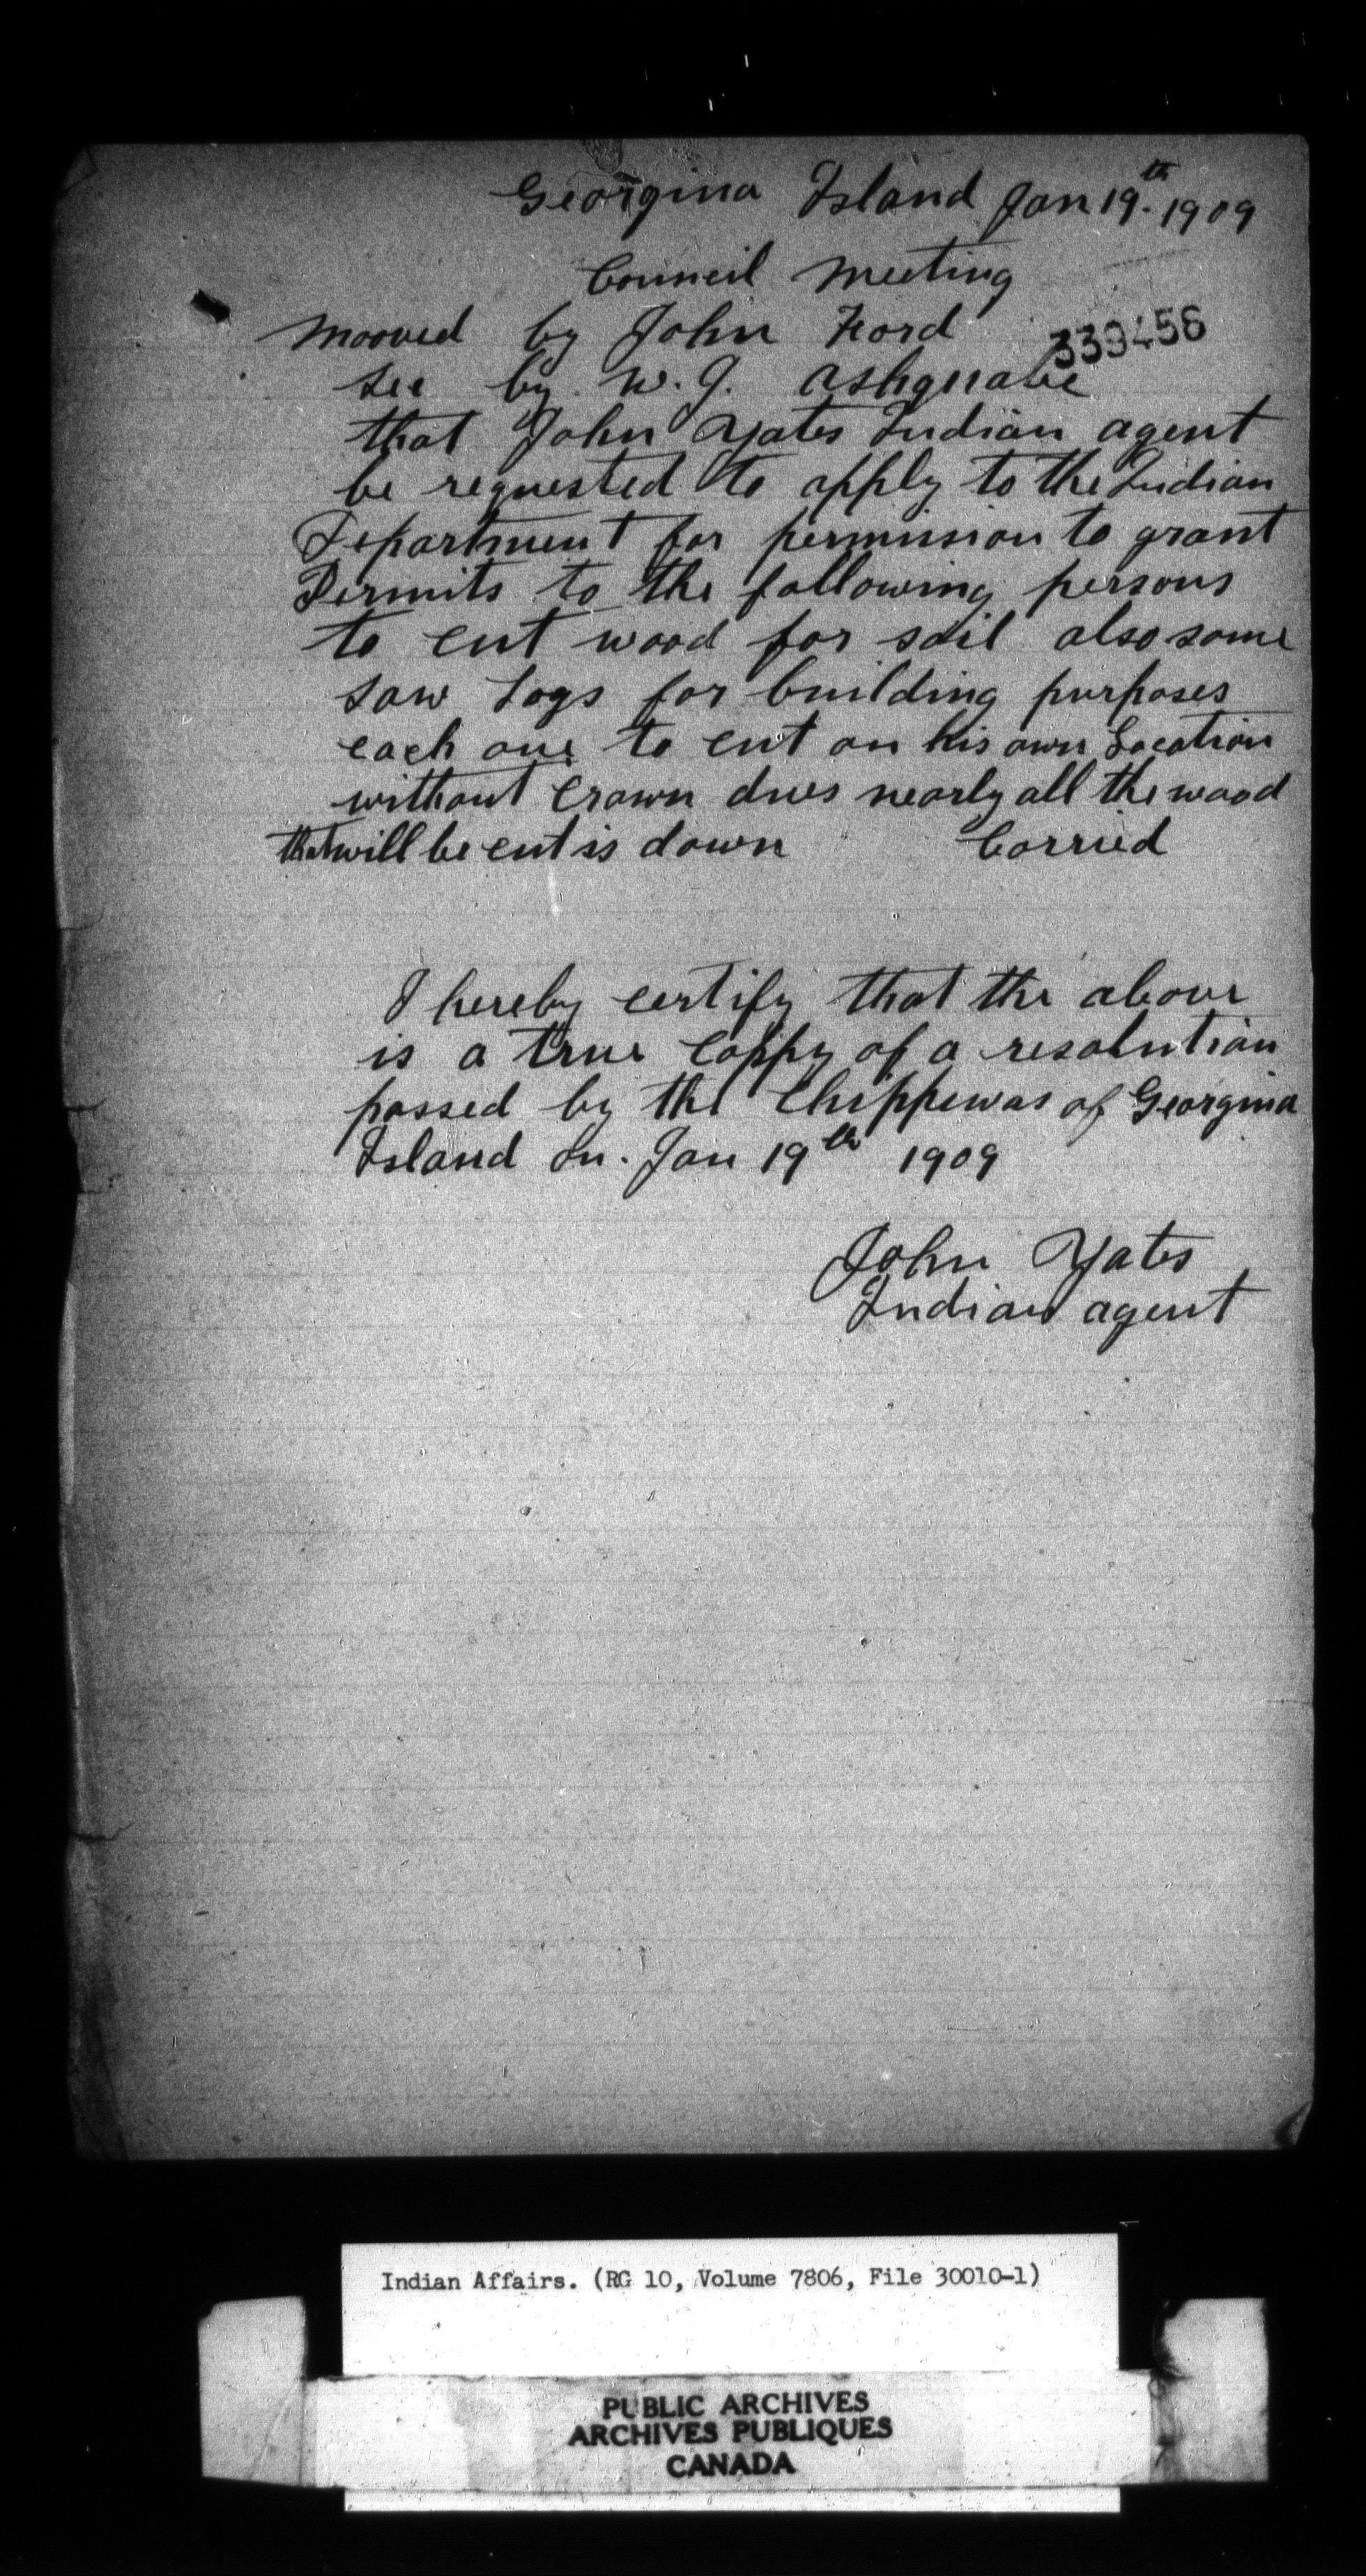 Georgina Island Jan 19th. 1909
Council Meeting
Mooved by John Ford
339456
sec by W. J. Ashquabe
that John Yates Indian agent
be requested to apply to the Indian
Department for permission to grant
Permits to the following persons
to cut wood for sail also some
saw Logs for building purposes
each one to cut on his own Location
without Crown dues nearly all the wood
that will be cut is down Carried
I hereby certify that the above
is a true Coppy of a resolution
passed by the Chippewas of Georgina
Island On. Jan 19th 1909
John Yates
Indian agent
Indian Affairs. (RG 10, Volume 7806, File 30010-1)
PUBLIC ARCHIVES
ARCHIVES PUBLIQUES
CANADA